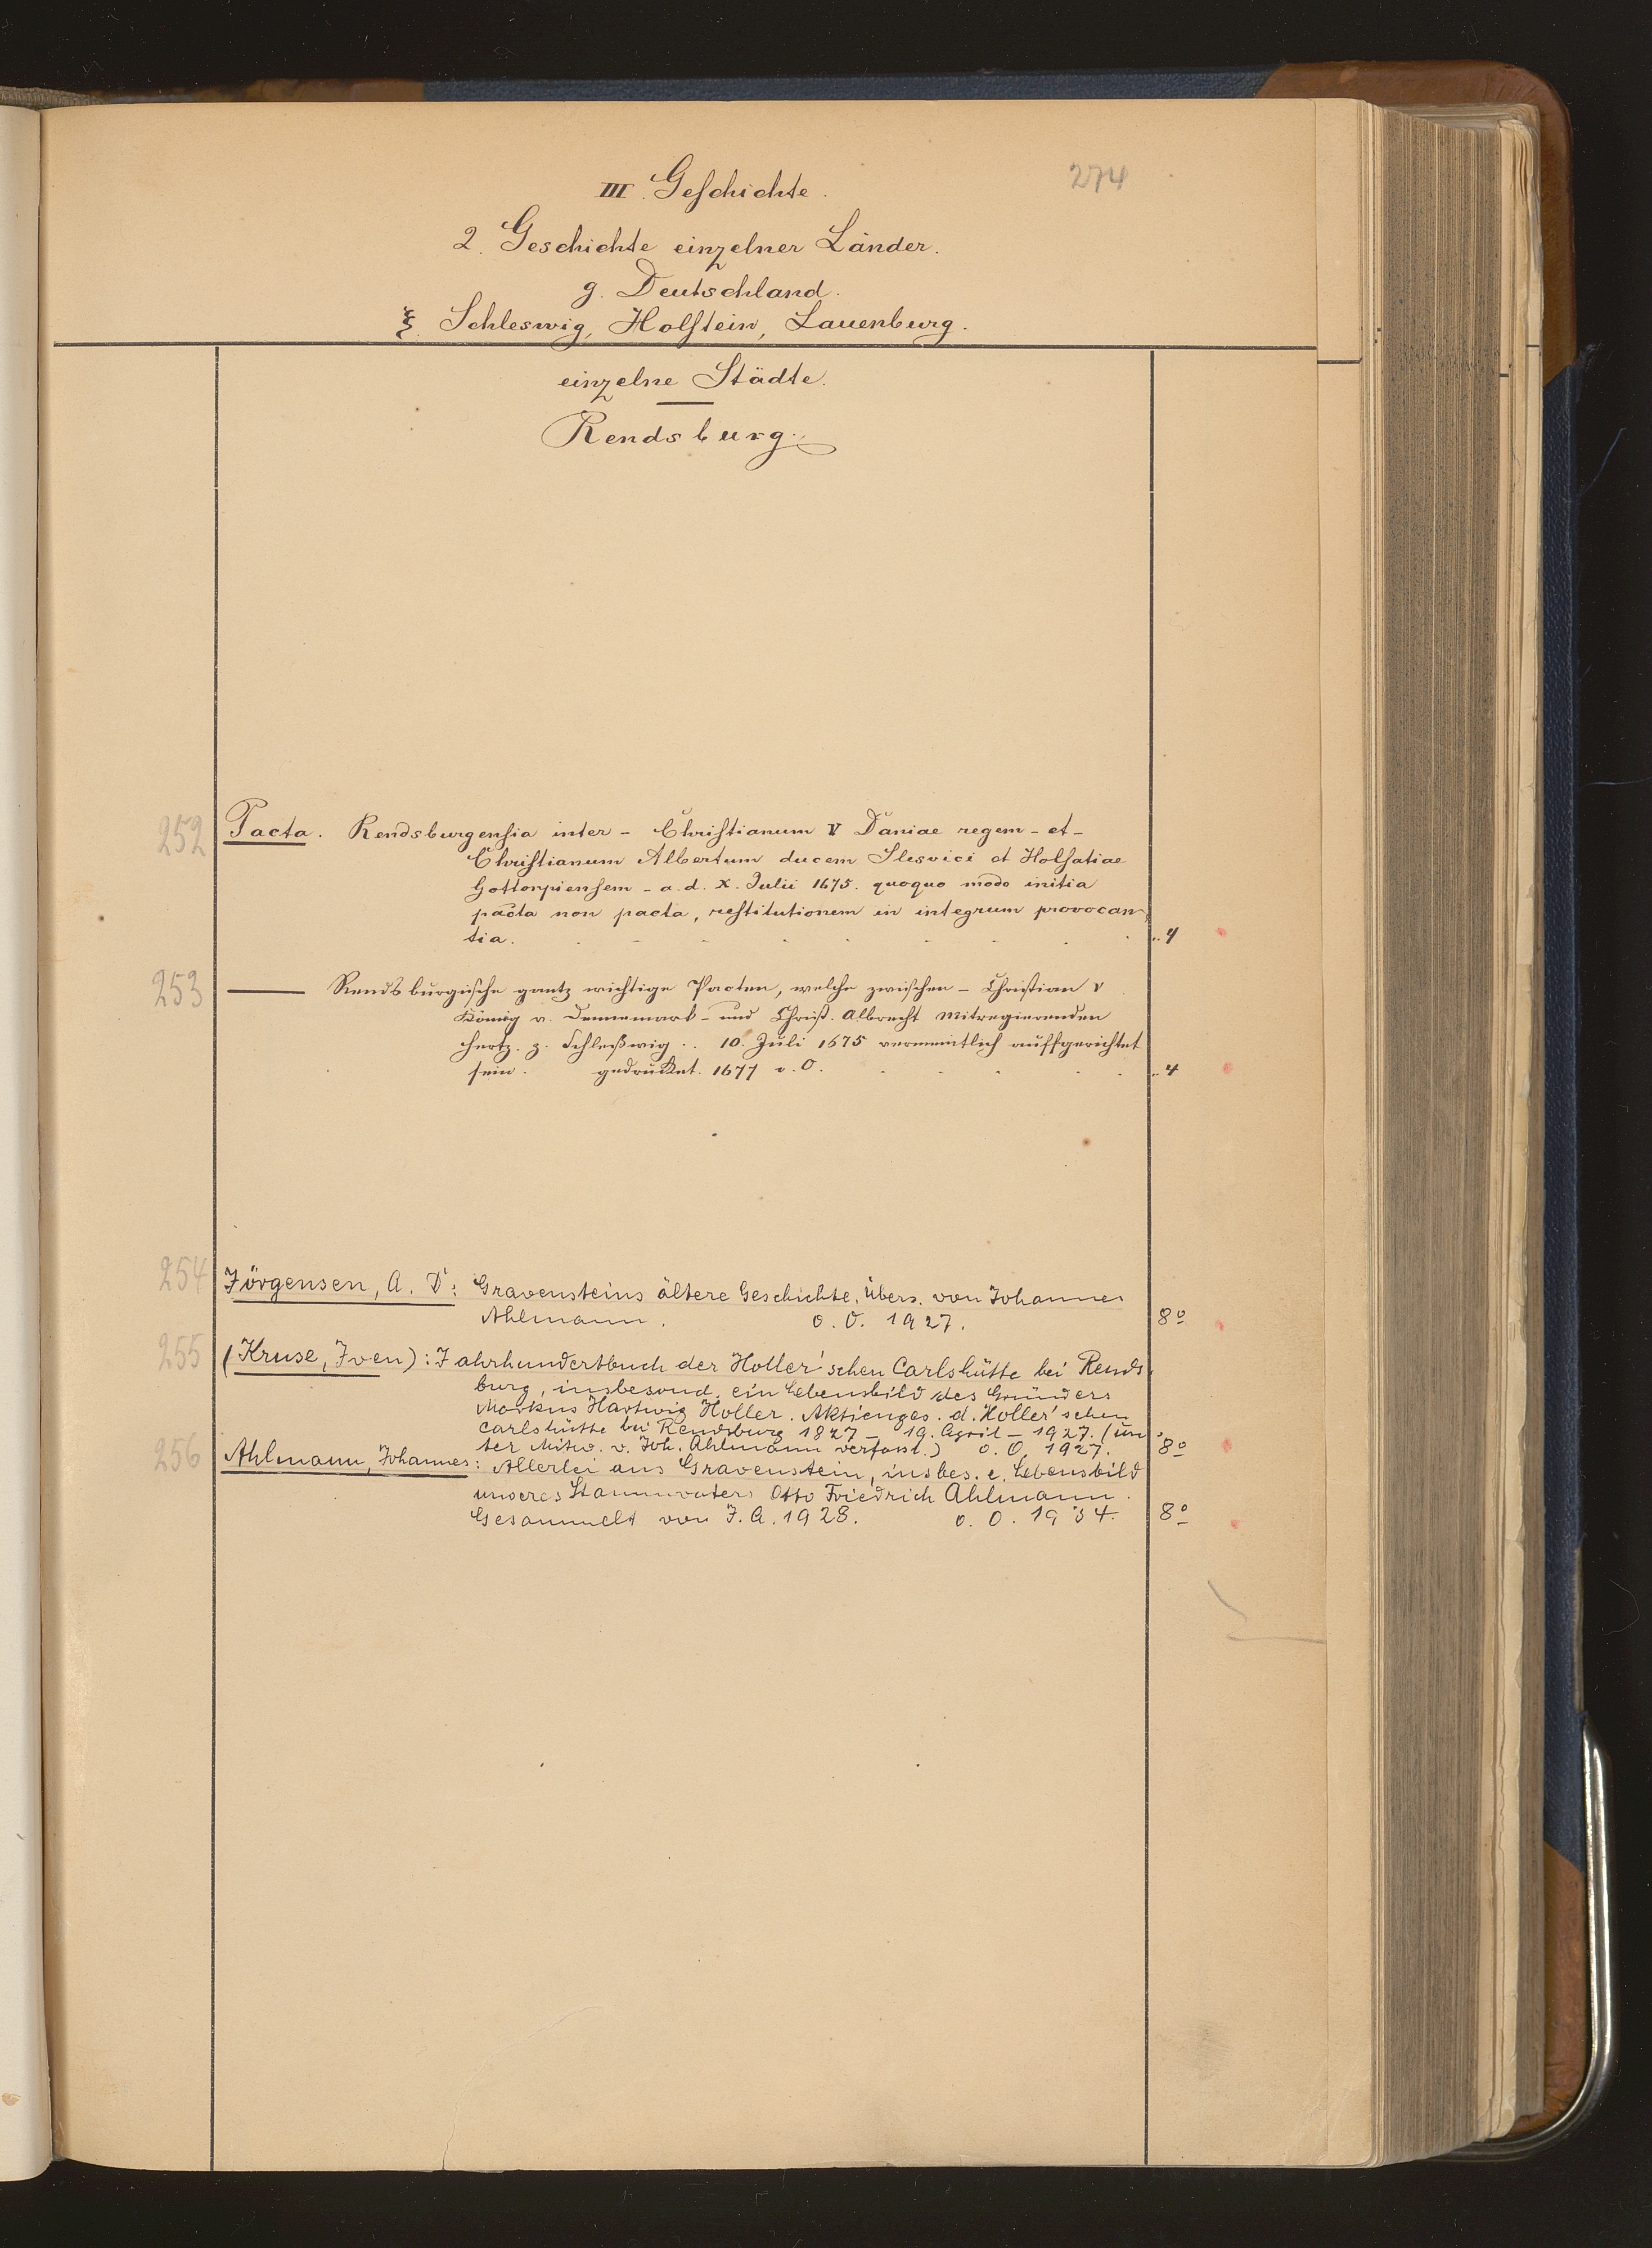 274
III. Geschichte.
2. Geschichte einzelner Länder.
g. Deutschland.
ξ. Schleswig, Holstein, Lauenburg.
einzelne Städte.
Rendsburg.
252 Pacta. Rendsburgensia inter - Christianum V Daniae regem - et -
Christianum Albertum ducem Slesvici et Holsatiae
Gottorpiensem - a. d. X. Julii 1675. quoquo modo initia
pacta non pacta, restitutionem in integrum provocan-
tia. 4
253 — Rendsburgische gantz wichtige Pacten, welche zwischen - Christian V
König v. Dennemark - und Christ. Albrecht mitregierenden
Hertz. z. Schleßwig .. 10. Juli 1675 vermeintlich auffgerichtet
sein. gedrucket. 1677 o. O. 4
254 Jörgensen, A. D.: Gravensteins ältere Geschichte. Übers. von Johannes
Ahlmann. o. O. 1927. 8º
255 (Kruse, Iven): Jahrhundertbuch der Holler'schen Carlshütte bei Rends-
burg, insbesond. ein Lebensbild des Gründers
Markus Hartwig Holler. Aktienges. d. Holler'schen
Carlshütte bei Rendsburg 1827 - 19. April - 1927. (Un-
ter Mitw. v. Joh. Ahlmann verfasst.) o. O. 1927. 8º
256 Ahlmann, Johannes: Allerlei aus Gravenstein, insbes. e. Lebensbild
unseres Stammvaters Otto Friedrich Ahlmann.
Gesammelt von J. A. 1928. o. O. 1934. 8º